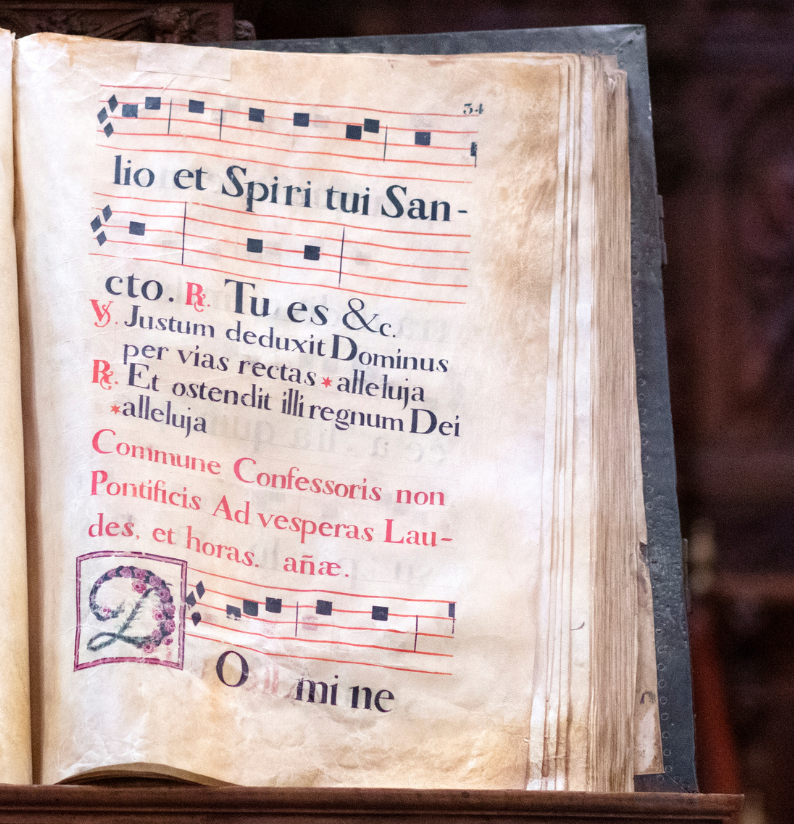 34
lio et Spiri tui San-
cto. ℟. Tu es &c.
℣. Justum deduxit Dominus
per vias rectas * alleluja
℟. Et ostendit illi regnum Dei
*alleluja
Commune Confessoris non
Pontificis Ad vesperas Lau-
des, et horas. añæ.
D
O mi ne